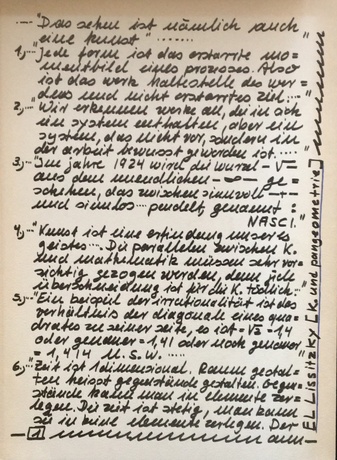 ...."Das sehen ist nämlich auch
eine kunst" .........
1,..."Jede form ist das erstarrte mo-
mentbild eines prozesses. Also
ist das werk haltestelle des wer-
dens und nicht erstarrtes ziel....
2,..."Wir erkennen werke an, die in sich
ein system enthalten, aber ein
system, das nicht vor, sondern in
der arbeit bewusst geworden ist....
3,..."Im jahre 1924 wird die wurzel -√-
aus dem unendlichen -∞- ge=
schehen, das zwischen sinnvoll -+-
und sinnlos - pendelt, genannt:
NASCI.
4,..."Kunst ist eine erfindung unseres
geistes.... Die parallelen zwischen K.
und mathematik müssen sehr vor-
sichtig gezogen werden, denn jede
überschneidung ist für die K. tödlich..."
5,..."Ein beispiel der irrationalität ist das
verhältnis der diagonale eines qua-
drates zu seiner seite, es ist = √2 = 1,4
oder genauer = 1,41 oder noch genauer
= 1,414 U.S.W. .....
6,..."Zeit ist 1dimensional. Raum gestal-
ten heisst gegenstände gestalten. Gegen-
stände kann man in elemente zer-
legen. Die zeit ist stetig, man kann
sie in keine elemente zerlegen. Der
1
EL Lissitzky [K. und pangeometrie]